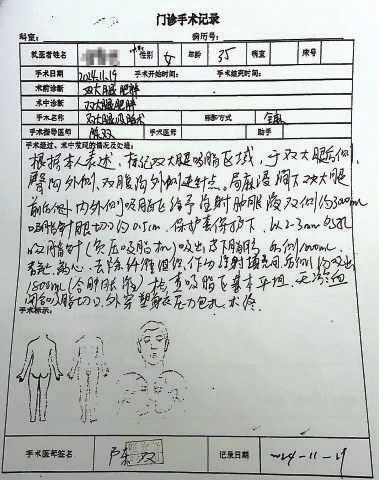 门诊手术记录
科室: 病历号:
就医者姓名 性别 女 年龄 35 病室 床号
手术日期 2024.11.19 手术开始时间: 手术结束时间:
术前诊断 双大腿肥胖
术中诊断 双大腿肥胖
手术名称 双大腿吸脂术 麻醉方式
手术指导医师 手术医师 助手
手术经过、术中发现的情况及处理:
根据本人表述,标记双大腿吸脂区域,于双大腿后侧,
臀沟外侧,双腹沟外侧进针点。局麻浸润下双大腿
前后侧、内外侧吸脂区给予注射肿胀液双侧约
吸脂针眼切口约0.5cm,保护套保护下,以2-3mm
吸脂针(负压吸脂机)吸出皮下脂肪,后侧
离心、去除纤维组织,作为注射填充用,后侧约吸出
1500ml(含肿胀液)检查吸脂区基本平坦,无活动血
闭合吸脂切口,外穿塑身衣压力包扎,术终。
手术标示:
手术医师签名 双 记录日期 2024-11-19